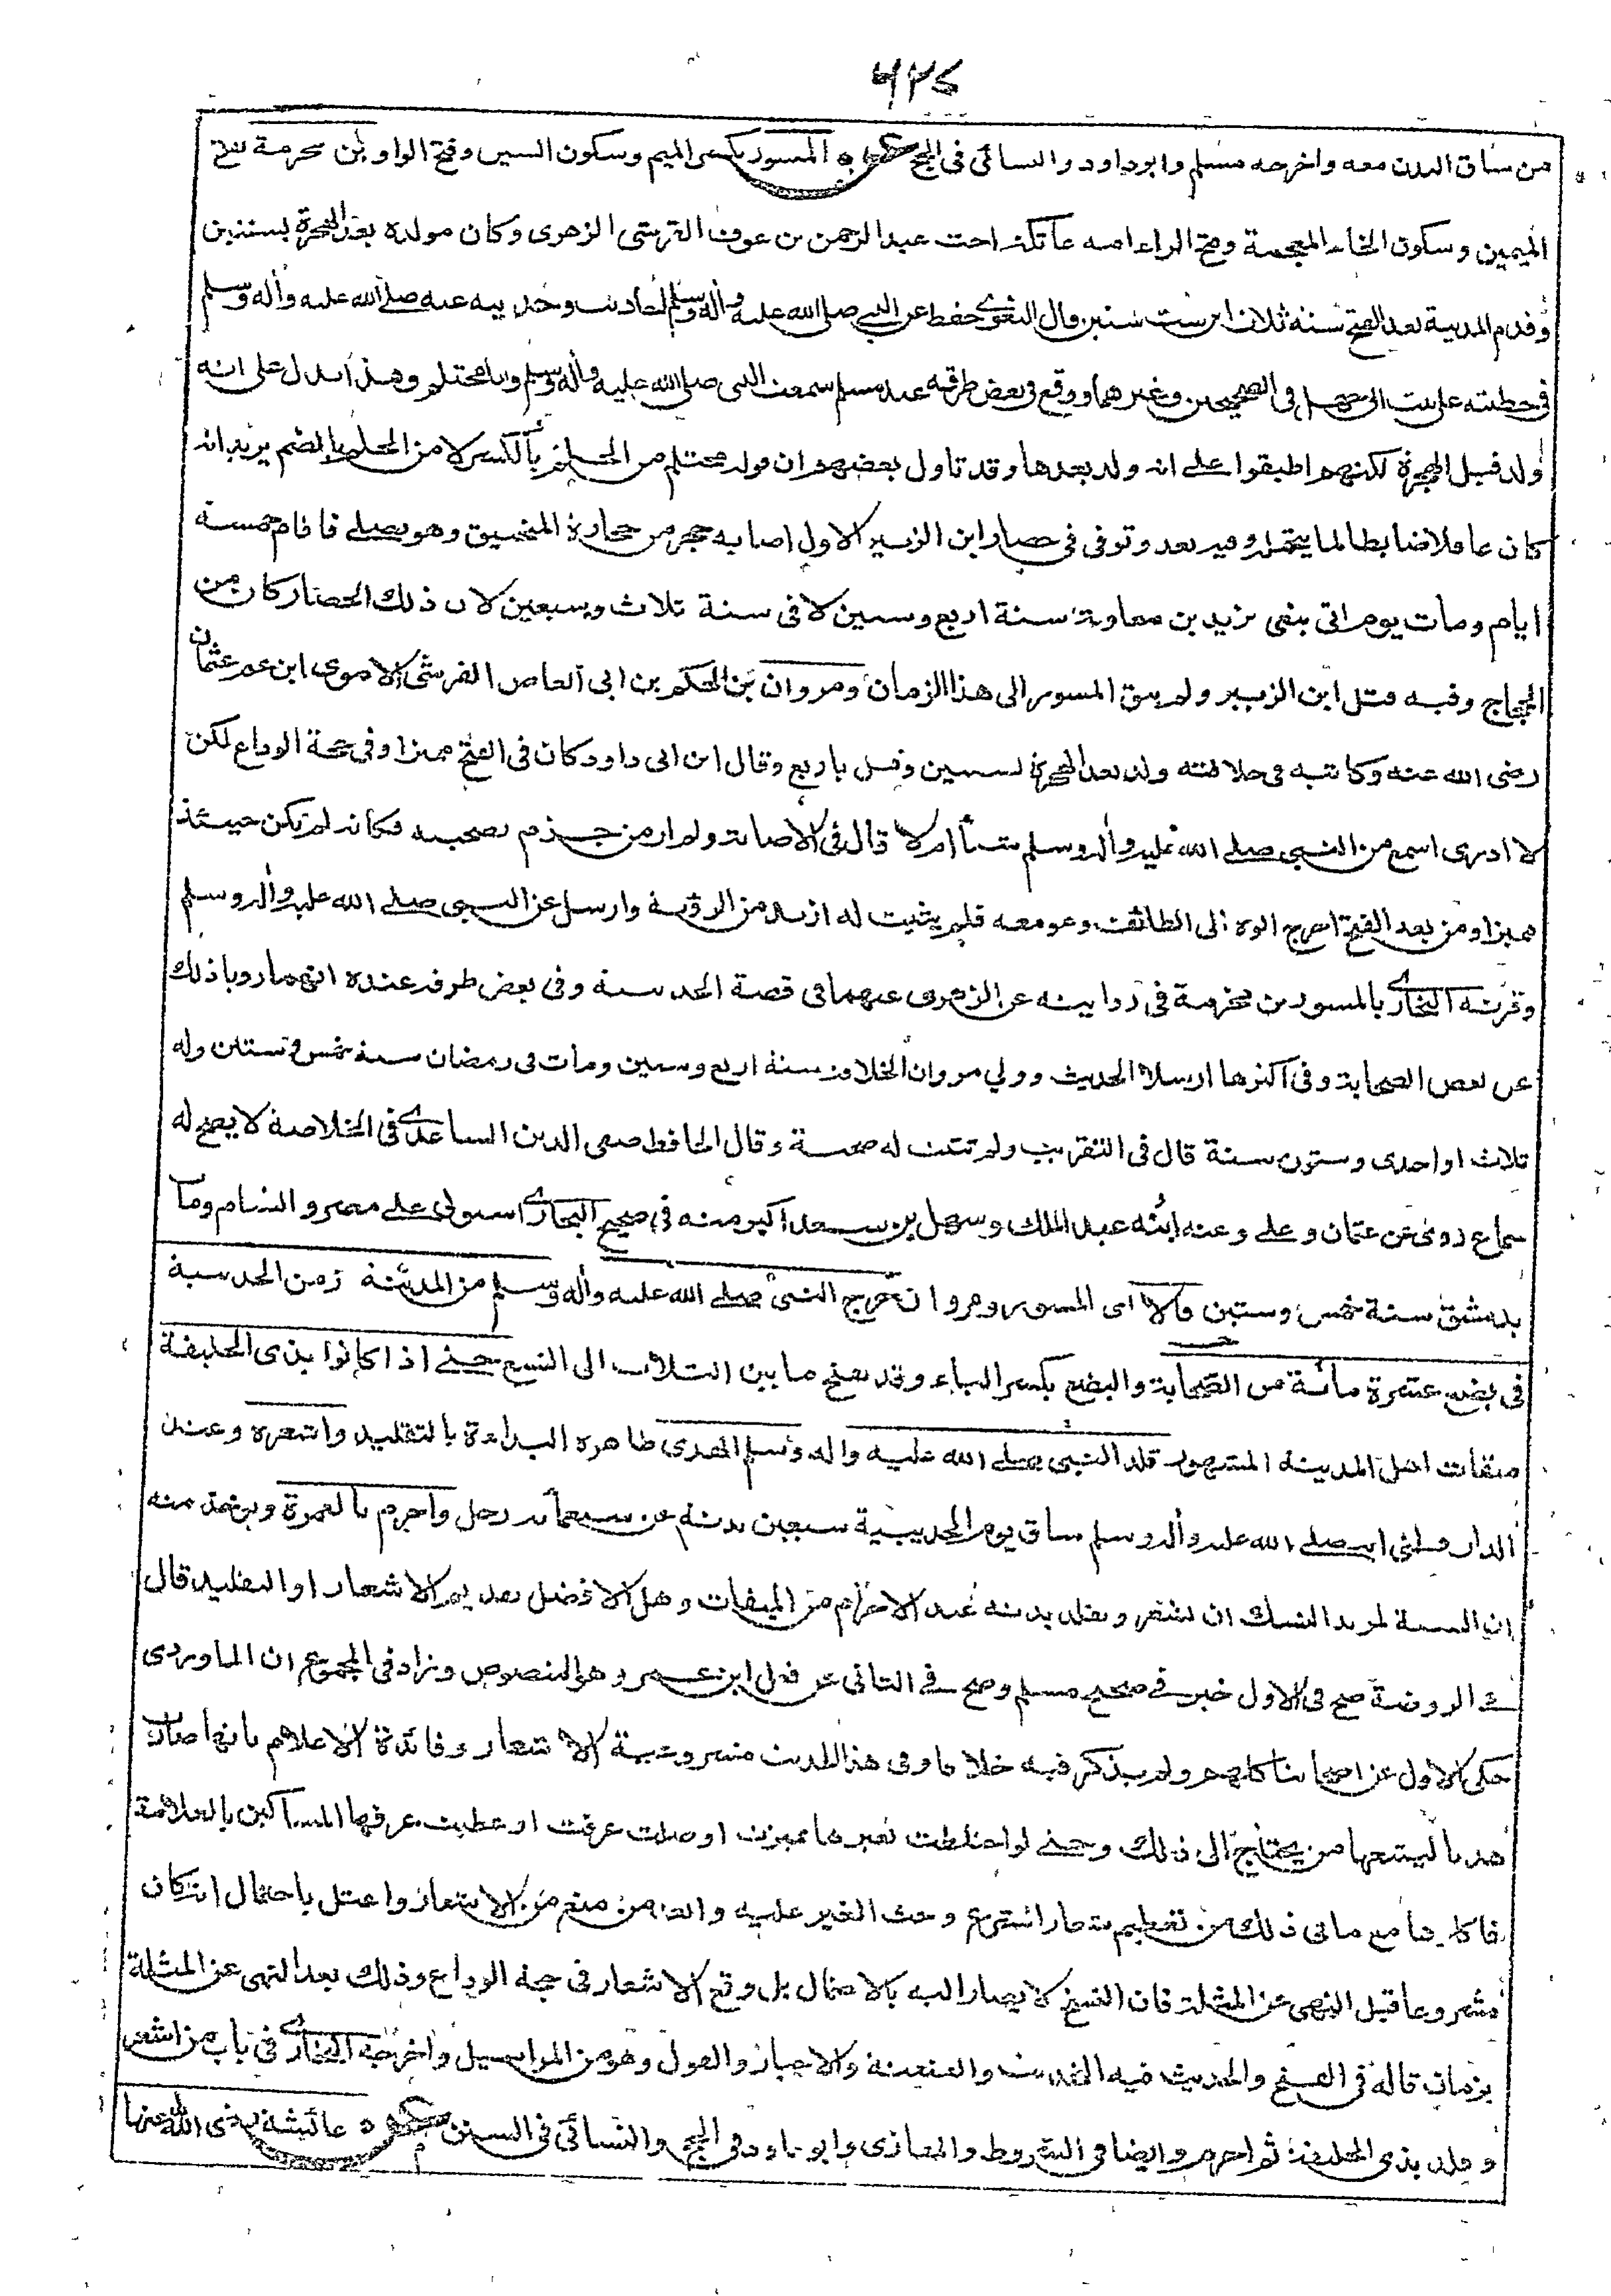 ٦٢٤
من ساق البدن معه واخرجه مسلم وابو داود والنسائى فى الحج المسور بكسر الميم وسكون السين وفتح الواو بن مخرمة بفتح
الميمين وسكون الخاء المعجمة وفتح الراء امه عاتكة اخت عبد الرحمن بن عوف القرشى الزهرى وكان مولده بعد الهجرة بسنتين
وقدم المدينة بعد الفتح سنة ثلاث ابن ست سنين وقال البغوى حفظ عن النبى صلى الله عليه واله وسلم احاديث وحديثه عنه صلى الله عليه واله وسلم
فى خطبته على بنت ابى جهل فى الصحيحين وغيرهما ووقع فى بعض طرقه عند مسلم سمعت النبى صلى الله عليه واله وسلم وانا محتلم وهذا يدل على انه
ولد قبل الهجرة لكنهم اطبقوا على انه ولد بعدها وقد تاول بعضهم ان قوله محتلم من الحلم بالكسر لا من الحلم بالضم يريد انه
كان عاقلا ضابطا لما يتحمله وفيه بعد وتوفى فى حصار ابن الزبير الاول اصابه حجر من حجارة المنجنيق وهو يصلى فاقام خمسة
ايام ومات يوم اتى بنعى يزيد بن معاوية سنة اربع وستين لا فى سنة ثلاث وسبعين لان ذلك الحصار كان من
الحجاج وفيه قتل ابن الزبير ولم يبق المسور الى هذا الزمان ومروان بن الحكم بن ابى العاص القرشى الاموى ابن عم عثمان
رضى الله عنه وكاتبه فى خلافته ولد بعد الهجرة بسنتين وقيل باربع وقال ابن ابى داود كان فى الفتح مميزا وفى حجة الوداع لكن
لا ادرى اسمع من النبى صلى الله عليه واله وسلم شيئا ام لا قال فى الاصابة ولم ار من جزم بصحبته فكانه لم يكن حينئذ
مميزا ومن بعد الفتح اخرج ابوه الى الطائف وهو معه فلم يثبت له ازيد من الرؤية وارسل عن النبى صلى الله عليه واله وسلم
وقرنه البخارى بالمسور بن مخرمة فى روايته عن الزهرى عنهما فى قصة الحديبية وفى بعض طرقه عنده انهما رويا ذلك
عن بعض الصحابة وفى اكثرها ارسلا الحديث وولي مروان الخلافة سنة اربع وستين ومات فى رمضان سنة خمس وستين وله
ثلاث او احدى وستون سنة قال فى التقريب ولم تثبت له صحبة وقال الحافظ صفى الدين الساعدى فى الخلاصة لا يصح له
سماع روى عن عثمان وعلى وعنه ابنه عبد الملك وسهل بن سعد اكبر منه فى صحيح البخارى استولى على مصر والشام ومات
بدمشق سنة خمس وستين قالا اى المسور ومروان خرج النبى صلى الله عليه واله وسلم من المدينة زمن الحديبية
فى بضع عشرة مائة من الصحابة والبضع بكسر الباء وقد تفتح ما بين الثلاث الى التسع حتى اذا كانوا بذى الحليفة
ميقات اهل المدينة المشهور قلد النبى صلى الله عليه واله وسلم الهدى ظاهره البداءة بالتقليد واشعره وعند
الدارقطنى انه صلى الله عليه واله وسلم ساق يوم الحديبية سبعين بدنة عن سبعمائة رجل واحرم بالعمرة ويؤخذ منه
ان السنة لمريد النسك ان يشعر ويقلد بدنه عند الاحرام من الميقات وهل الافضل تقديم الاشعار او التقليد قال
فى الروضة صح فى الاول خبر فى صحيح مسلم وصح فى الثانى عن فعل ابن عمر وهو المنصوص وزاد فى المجموع ان الماوردى
حكى الاول عن اصحابنا كلهم ولم يذكر فيه خلافا وفى هذا الحديث مشروعية الاشعار وفائدة الاعلام بانها صارت
هديا ليتبعها من يحتاج الى ذلك وحتى لو اختلطت بغيرها تميزت او ضلت عرفت او عطبت عرفها المساكين بالعلامة
فاكلوها مع ما فى ذلك من تعظيم شعار الشرع وحث الغير عليه وابعد من منع من الاشعار واعتل باحتمال انه كان
مشروعا قبل النهى عن المثلة فان النسخ لا يصار اليه بالاحتمال بل وقع الاشعار فى حجة الوداع وذلك بعد النهى عن المثلة
بزمان قاله فى الفتح والحديث فيه التحديث والعنعنة والاخبار والقول وهو من المراسيل واخرجه البخارى فى باب من اشعر
وقلد بذى الحليفة ثم احرم وايضا فى الشروط والمغازى وابو داود فى الحج والنسائى فى السنن عائشة رضى الله عنها